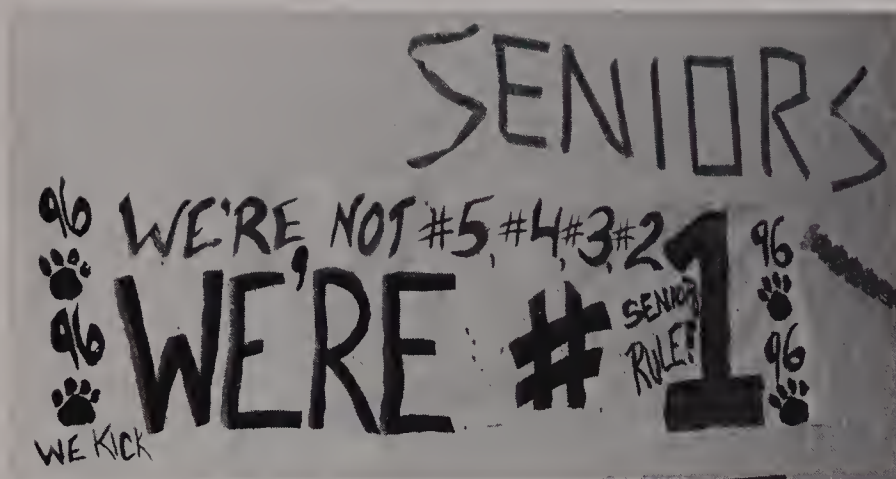 SENIORS
96 WE'RE NOT #5, #4, #3, #2 96
96 WE'RE #1 96
SENIORS
RULE!
WE KICK